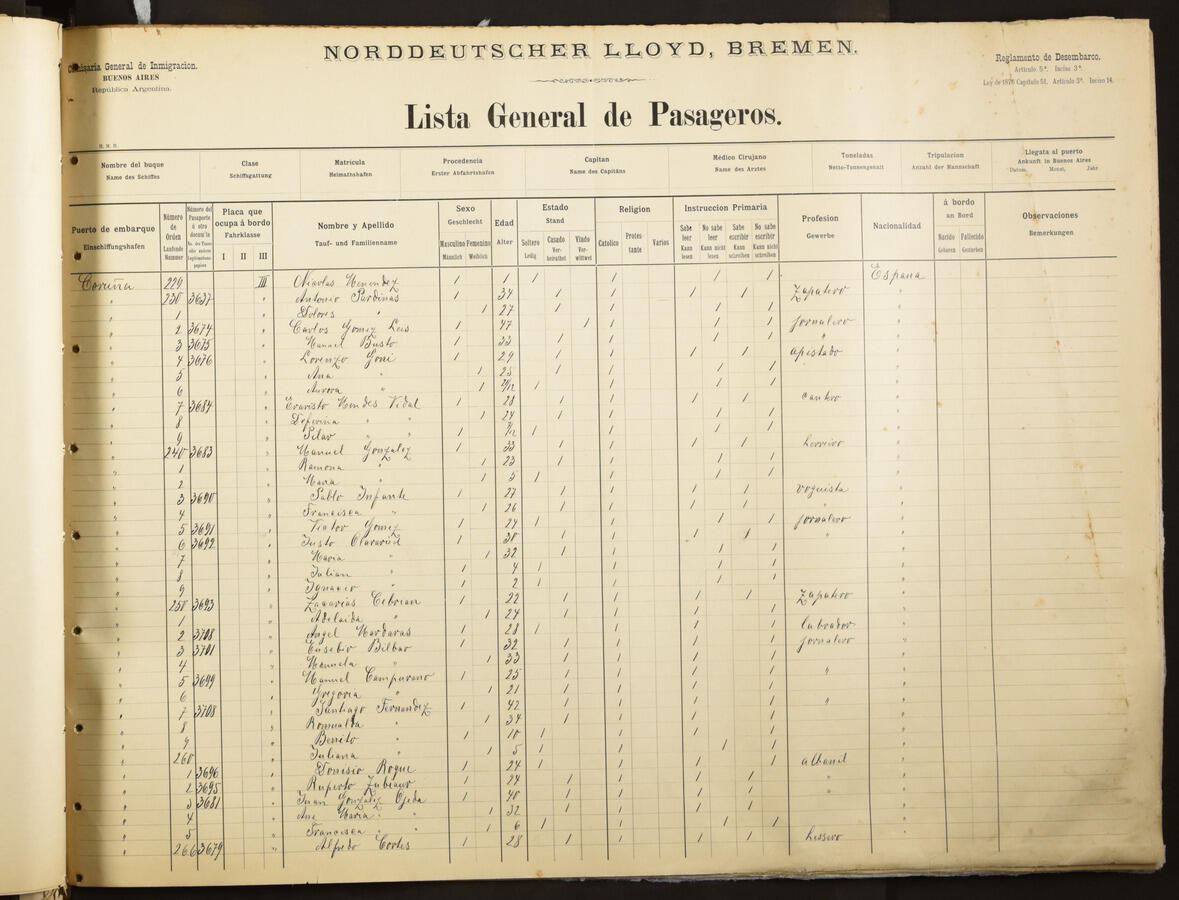 NORDDEUTSCHER LLOYD, BREMEN.
General de Inmigracion.
BUENOS AIRES
República Argentina.
Reglamento de Desembarco.
Articulo 5º. Inciso 3º.
Ley de 1876 Capitulo 51. Articulo 3º. Inciso 14.
Lista General de Pasageros.
Nombre del buque Clase Matricula Procedencia Capitan Médico Cirujano Toneladas Tripulacion Llegata al puerto
Name des Schiffes Schiffsgattung Heimathshafen Erster Abfahrtshafen Name des Capitäns Name des Arztes Netto-Tonnengehalt Anzahl der Mannschaft Ankunft in Buenos Aires
Datum. Monat. Jahr.
Puerto de embarque Número de Orden Placa que ocupa á bordo Nombre y Apellido Sexo Edad Estado Religion Instruccion Primaria Profesion Nacionalidad á bordo Observaciones
Einschiffungshafen Laufende Nummer Fahrklasse Tauf- und Familienname Geschlecht Alter Stand Gewerbe an Bord Bemerkungen
I II III Masculino Femenino Soltero Casado Viudo Catolico Protestante Varios Sabe leer No sabe leer Sabe escribir No sabe escribir Nacido Fallecido
Männlich Weiblich Ledig Verheirathet Verwittwet Kann lesen Kann nicht lesen Kann schreiben Kann nicht schreiben Geboren Gestorben
Coruña 229 III Nicolas Menendez / 1 / / / / España
" 230 3637 " Antonio Pardinas / 34 / / / / Zapatero "
" 1 " Dolores " / 27 / / / / "
" 2 3674 " Carlos Gomez Leis / 47 / / / / Jornalero "
" 3 3675 " Manuel Busto / 33 / / / / " "
" 4 3676 " Lorenzo Goni / 29 / / / / "
" 5 " Ana " / 25 / / / / "
" 6 " Aurora " / / / / / "
" 7 3684 " Evaristo Mendes Vidal / 28 / / / / Cantero "
" 8 " " " / 24 / / / / "
" 9 " Pilar " " / / / / / "
" 240 3683 " Manuel Gonzalez / 33 / / / / "
" 1 " Ramona " / 23 / / / / "
" 2 " Maria " / 5 / / / / "
" 3 3690 " Pablo Infante / 27 / / / / "
" 4 " Francisca " / 26 / / / / "
" 5 3691 " Victor Gomez / 24 / / / / Jornalero "
" 6 3692 " Justo / 30 / / / / " "
" 7 " Maria " / 32 / / / / "
" 8 " Julian " / 4 / / / / "
" 9 " Ignacio " / 2 / / / / "
" 250 3693 " Zacarias Cebrian / 22 / / / / Zapatero "
" 1 " Adelaida " / 24 / / / / "
" 2 3708 " Angel / 28 / / / / Labrador "
" 3 3701 " Eusebio Bilbao / 32 / / / / Jornalero "
" 4 " Manuela " / 33 / / / / "
" 5 3699 " Manuel Campurano / 25 / / / / " "
" 6 " Gregoria " / 21 / / / / "
" 7 3708 " Santiago Fernandez / 42 / / / / " "
" 8 " Romualda " / 34 / / / / "
" 9 " Benito " / 10 / / / / "
" 260 " Juliana " / 5 / / / / "
" 1 3696 " Dionisio Roque / 24 / / / / Albanil "
" 2 3695 " Ruperto Zubiaur / 24 / / / / " "
" 3 3681 " Juan Gonzalez Ojeda / 40 / / / / "
" 4 " Ana Maria " / 32 / / / / "
" 5 " Francisca " / 6 / / / / "
" 266 3679 " Alfredo Cortes / 28 / / / / "